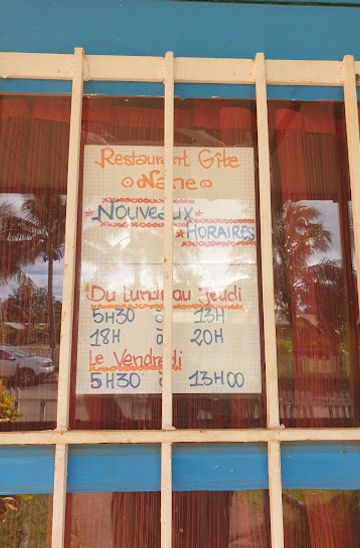 Restaurant Gîte
Naine
NOUVEAUX
HORAIRES
Du Lundi au Jeudi
5H30 à 13H
18H à 20H
Le Vendredi
5H30 à 13H00